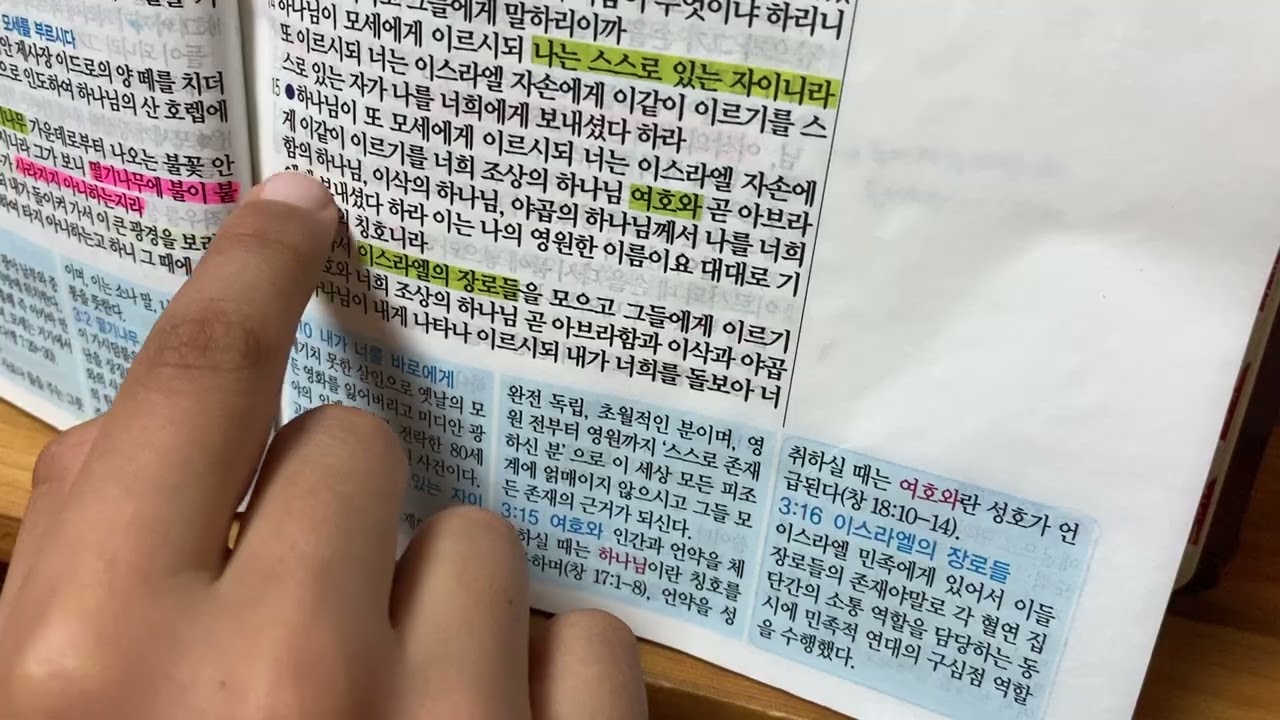 모세를 부르시다
안 제사장 이드로의 양 떼를 치더
으로 인도하여 하나님의 산 호렙에
나무 가운데로부터 나오는 불꽃 안
시니라 그가 보니 떨기나무에 불이 붙
가 사라지지 아니하는지라
내가 돌이켜 가서 이 큰 광경을 보리
하여 타지 아니하는고 하니 그 때에
이며, 이는 소나 말,
통을 뜻한다.
3:2 떨기나무
그들에게 말하리이까
무엇이냐 하리니
14 하나님이 모세에게 이르시되 나는 스스로 있는 자이니라
또 이르시되 너는 이스라엘 자손에게 이같이 이르기를 스
스로 있는 자가 나를 너희에게 보내셨다 하라
15 ●하나님이 또 모세에게 이르시되 너는 이스라엘 자손에
게 이같이 이르기를 너희 조상의 하나님 여호와 곧 아브라
함의 하나님, 이삭의 하나님, 야곱의 하나님께서 나를 너희
에게 보내셨다 하라 이는 나의 영원한 이름이요 대대로 기
칭호니라
이스라엘의 장로들을 모으고 그들에게 이르기
너희 조상의 하나님 곧 아브라함과 이삭과 야곱
하나님이 내게 나타나 이르시되 내가 너희를 돌보아 너
10 내가 너를 바로에게
못한 살인으로 옛날의 모
영화를 잃어버리고 미디안 광
전락한 80세
사건이다.
있는 자이
완전 독립, 초월적인 분이며, 영
원 전부터 영원까지 ‘스스로 존재
하신 분’으로 이 세상 모든 피조
계에 얽매이지 않으시고 그들 모
든 존재의 근거가 되신다.
3:15 여호와 인간과 언약을 체
하실 때는 하나님이란 칭호를
하며(창 17:1-8), 언약을 성
취하실 때는 여호와란 성호가 언
급된다(창 18:10-14).
3:16 이스라엘의 장로들
이스라엘 민족에게 있어서 이들
장로들의 존재야말로 각 혈연 집
단간의 소통 역할을 담당하는 동
시에 민족적 연대의 구심점 역할
을 수행했다.